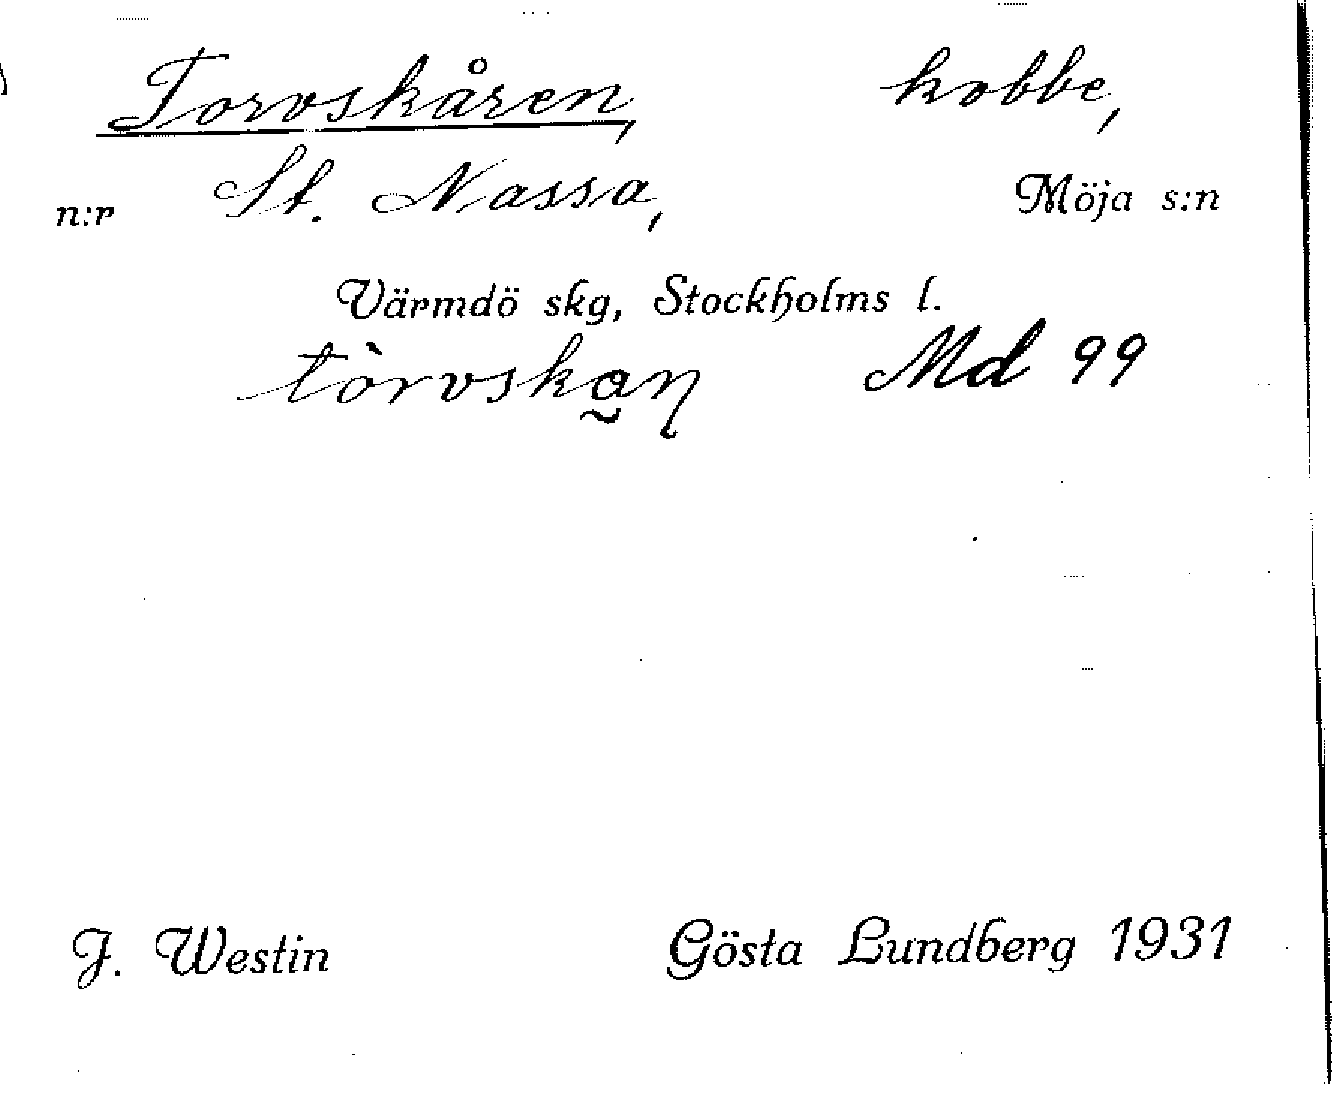 Torvskåren, kobbe,
n:r St. Nassa, Möja s:n
Värmdö skg, Stockholms l.
Md 99
J. Westin Gösta Lundberg 1931